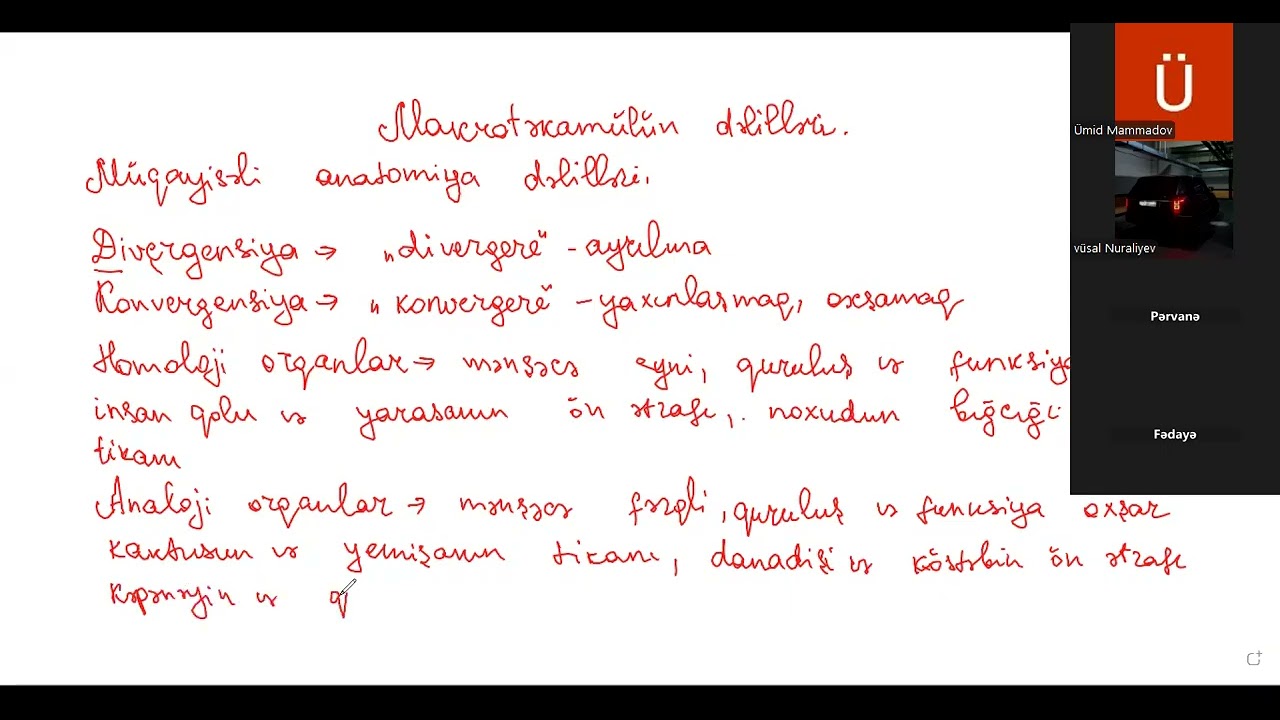 Makrotəkamülün dəlilləri.
Müqayisəli anatomiya dəlilləri.
Divergensiya → "divergere" - ayrılma
Konvergensiya → "konvergere" - yaxınlaşmaq, oxşamaq
Homoloji orqanlar → mənşəcə eyni, quruluş və funksiya
insan qolu və yarasanın ön ətrafı, noxudun bığcığı
tikanı
Analoji orqanlar → mənşəcə fərqli, quruluş və funksiya oxşar
kaktusun və yemişanın tikanı, danadişi və köstəbin ön ətrafı
kəpənəyin və q
Ü
Ümid Mammadov
vüsal Nuraliyev
Pərvanə
Fədayə